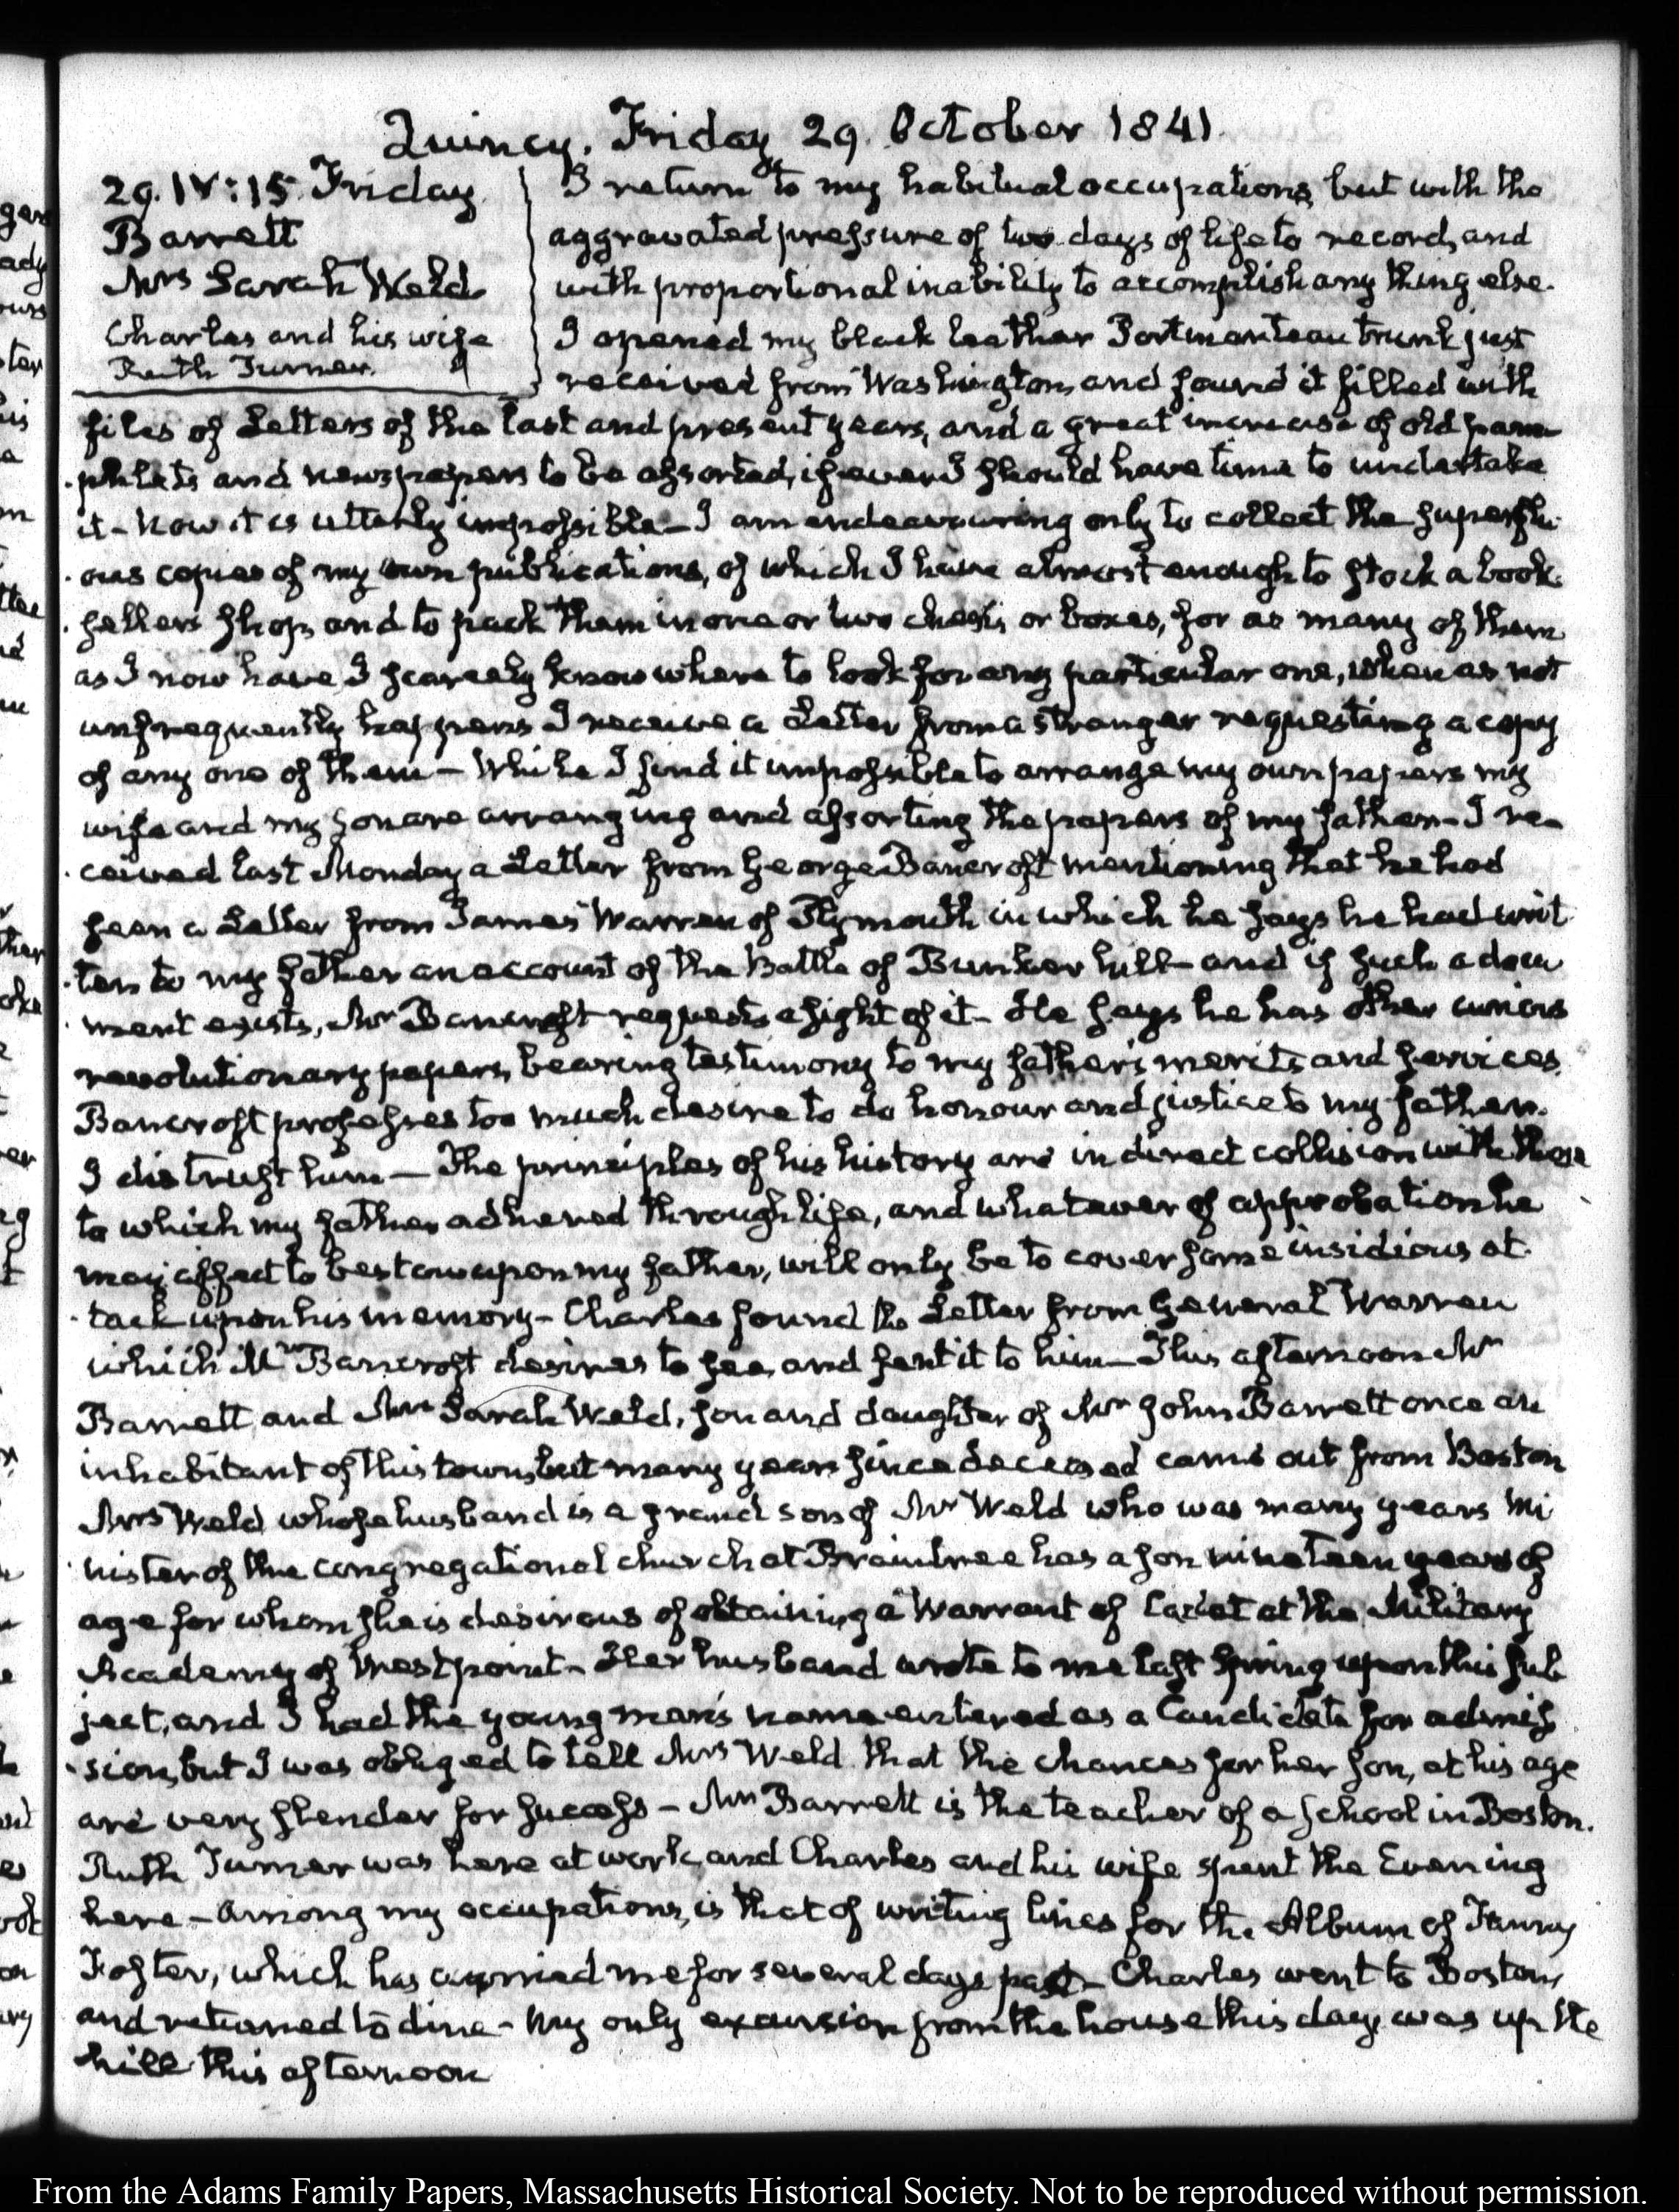 Quincy. Friday 29. October 1841.
29. IV:15. Friday
Barrett
Mrs Sarah Weld
Charles and his wife
Ruth Turner.
I return to my habitual occupations, but with the
aggravated pressure of two days of life to record, and
with proportional inability to accomplish any thing else.
I opened my black leather Portmanteau trunk just
received from Washington, and found it filled with
files of Letters of the last and present years, and a great increase of old pam-
phlets and newspapers to be assorted, if ever I should have time to undertake
it - Now it is utterly impossible - I am endeavouring only to collect the superflu-
ous copies of my own publications, of which I have almost enough to stock a book-
sellers shop, and to pack them in one or two chests, or boxes, for as many of them
as I now have, I scarcely know where to look for any particular one, when as not
unfrequently happens I receive a Letter from a stranger requesting a copy
of any one of them - While I find it impossible to arrange my own papers my
wife and my son are arranging and assorting the papers of my father - I re-
ceived last Monday a Letter from George Bancroft mentioning that he had
seen a Letter from James Warren of Plymouth in which he says he had writ-
ten to my father an account of the Battle of Bunker hill - and if such a docu-
ment exists, Mr Bancroft requests a sight of it - He says he has other curious
revolutionary papers, bearing testimony to my father's merits and services.
Bancroft professes too much desire to do honour and justice to my father.
I distrust him - The principles of his history are in direct collision with those
to which my father adhered through life, and whatever of approbation he
may affect to bestow upon my father, will only be to cover some insidious at-
tack upon his memory - Charles found the Letter from General Warren
which Mr Bancroft desires to see, and sent it to him - This afternoon Mr
Barrett and Mrs Sarah Weld, son and daughter of Mr John Barrett once an
inhabitant of this town, but many years since deceased came out from Boston
Mrs Weld whose husband is a grandson of Mr Weld who was many years Mi-
nister of the congregational church at Braintree has a son nineteen years of
age for whom she is desirous of obtaining a Warrant of Cadet at the Military
Academy of Westpoint - Her husband wrote to me last Spring upon this sub-
ject, and I had the young man's name entered as a Candidate for admis-
sion, but I was obliged to tell Mrs Weld that the chances for her son, at his age
are very slender for success - Mr Barrett is the teacher of a school in Boston.
Ruth Turner was here at work, and Charles and his wife spent the Evening
here - Among my occupations, is that of writing lines for the Album of Fanny
Foster, which has worried me for several days past - Charles went to Boston,
and returned to dine - My only excursion from the house this day was up the
hill this afternoon
From the Adams Family Papers, Massachusetts Historical Society. Not to be reproduced without permission.